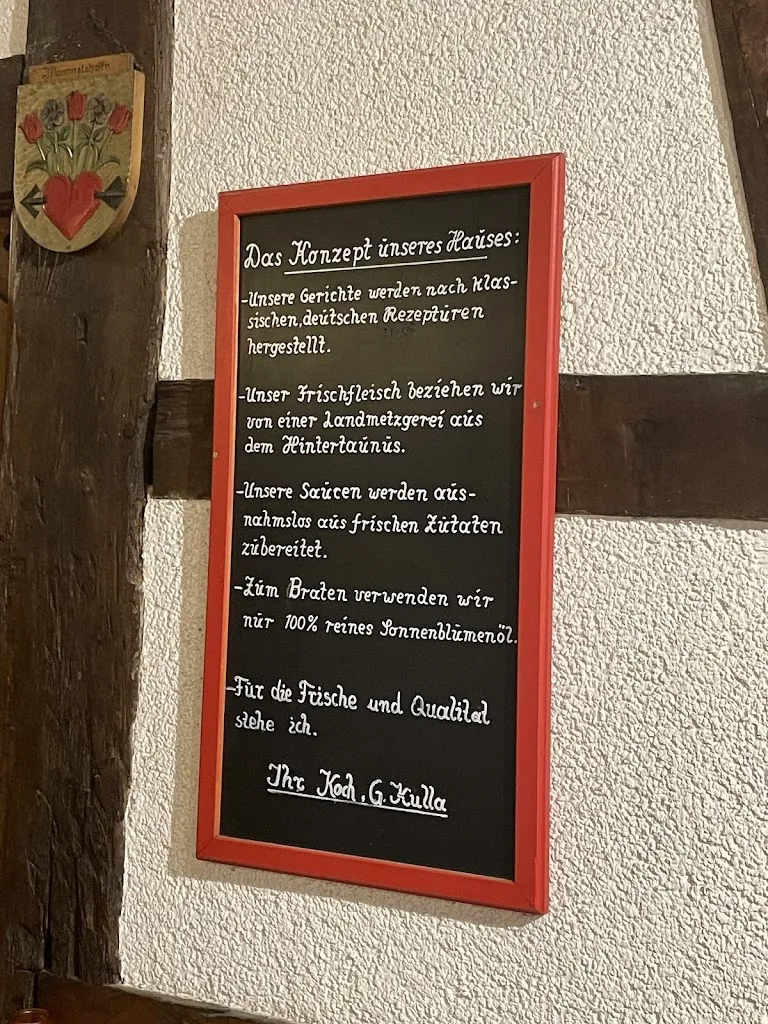 Das Konzept unseres Hauses:
-Unsere Gerichte werden nach klas-
sischen, deutschen Rezepturen
hergestellt.
-Unser Frischfleisch beziehen wir
von einer Landmetzgerei aus
dem Hintertaunus.
-Unsere Saucen werden aus-
nahmslos aus frischen Zutaten
zubereitet.
-Zum Braten verwenden wir
nur 100% reines Sonnenblumenöl.
-Für die Frische und Qualität
stehe ich.
Ihr Koch, G. Kulla